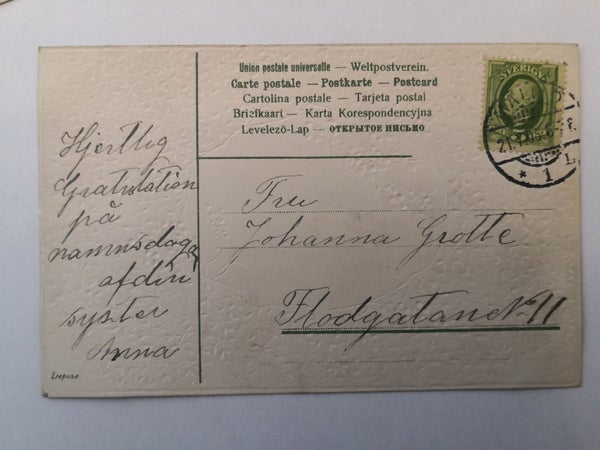 Union postale universelle — Weltpostverein.
Carte postale — Postkarte — Postcard
Cartolina postale — Tarjeta postal
Briefkaart — Karta Korespondencyjna
Levelező-Lap — ОТКРЫТОЕ ПИСЬМО
SVERIGE
* 1 L
Hjertlig
Gratulation
på
namnsdagen
af din
syster
Anna
Fru
Johanna Grotte
Flodgatan No 11